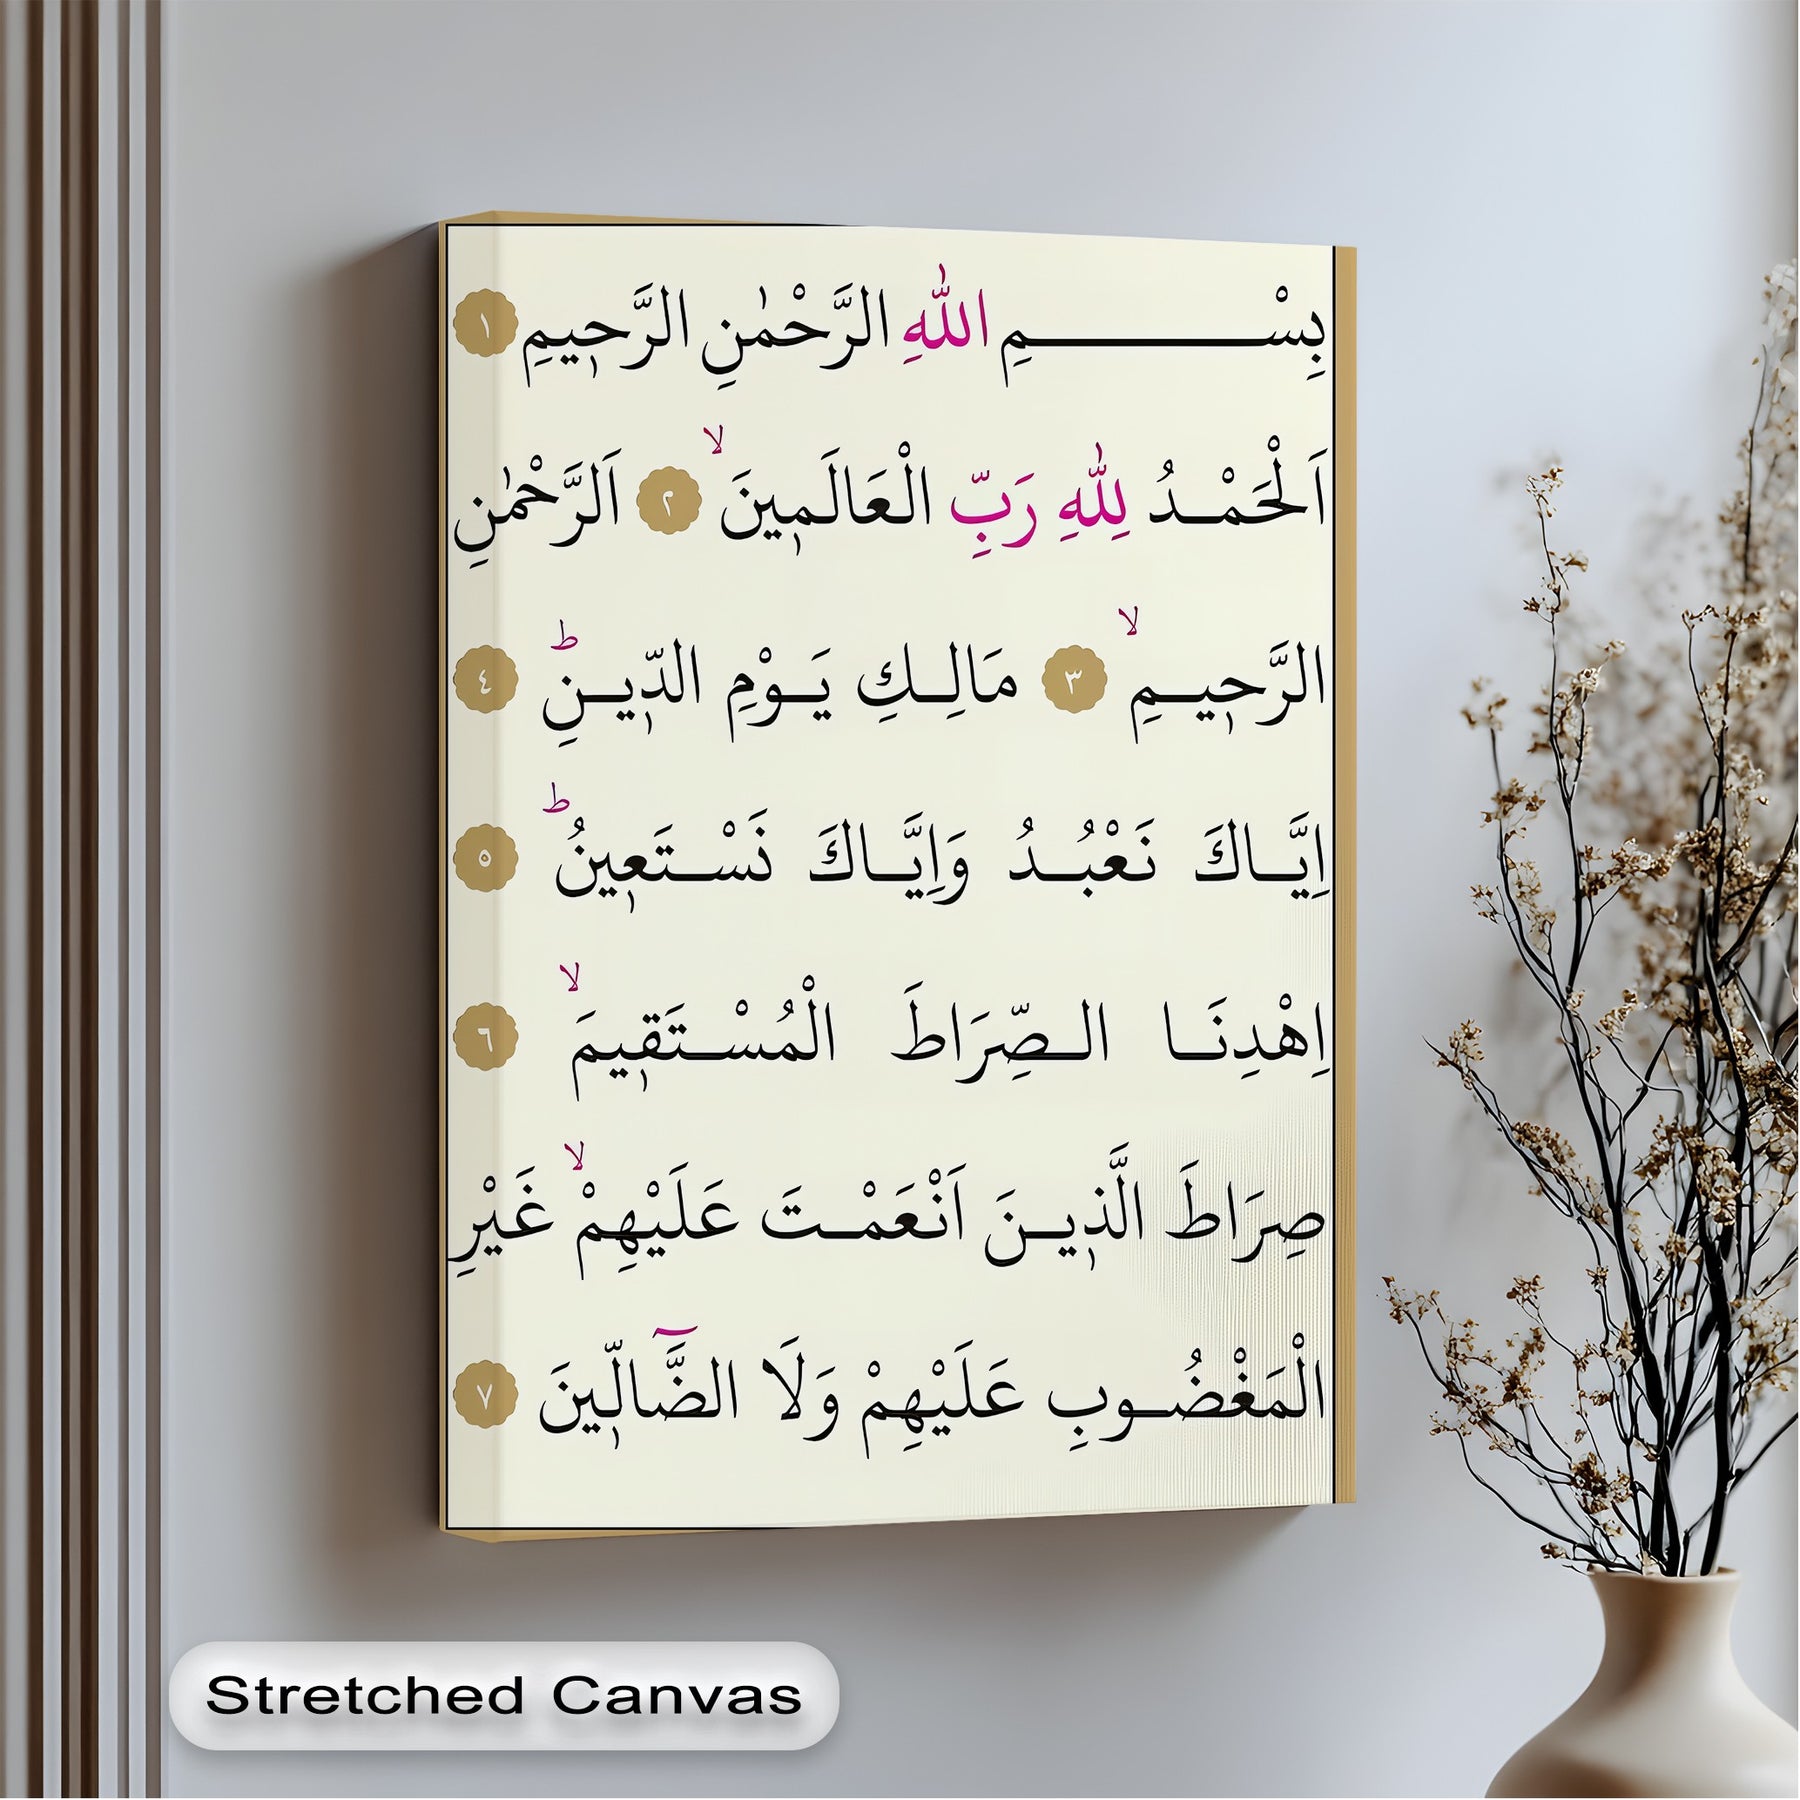 بِسْـــــــــمِ اللّٰهِ الرَّحْمٰنِ الرَّح۪يمِ ١
اَلْحَمْـدُ لِلّٰهِ رَبِّ الْعَالَم۪ينَۙ ٢ اَلرَّحْمٰنِ
الرَّح۪يـمِۙ ٣ مَالِـكِ يَـوْمِ الدّ۪يـنِۜ ٤
اِيَّـاكَ نَعْبُـدُ وَاِيَّـاكَ نَسْـتَع۪ينُۜ ٥
اِهْدِنَـا الـصِّرَاطَ الْمُسْـتَق۪يمَۙ ٦
صِرَاطَ الَّذ۪يـنَ اَنْعَمْـتَ عَلَيْهِمْۙ غَيْرِ
الْمَغْضُـوبِ عَلَيْهِمْ وَلَا الضَّٓالّ۪ينَ ٧
Stretched Canvas